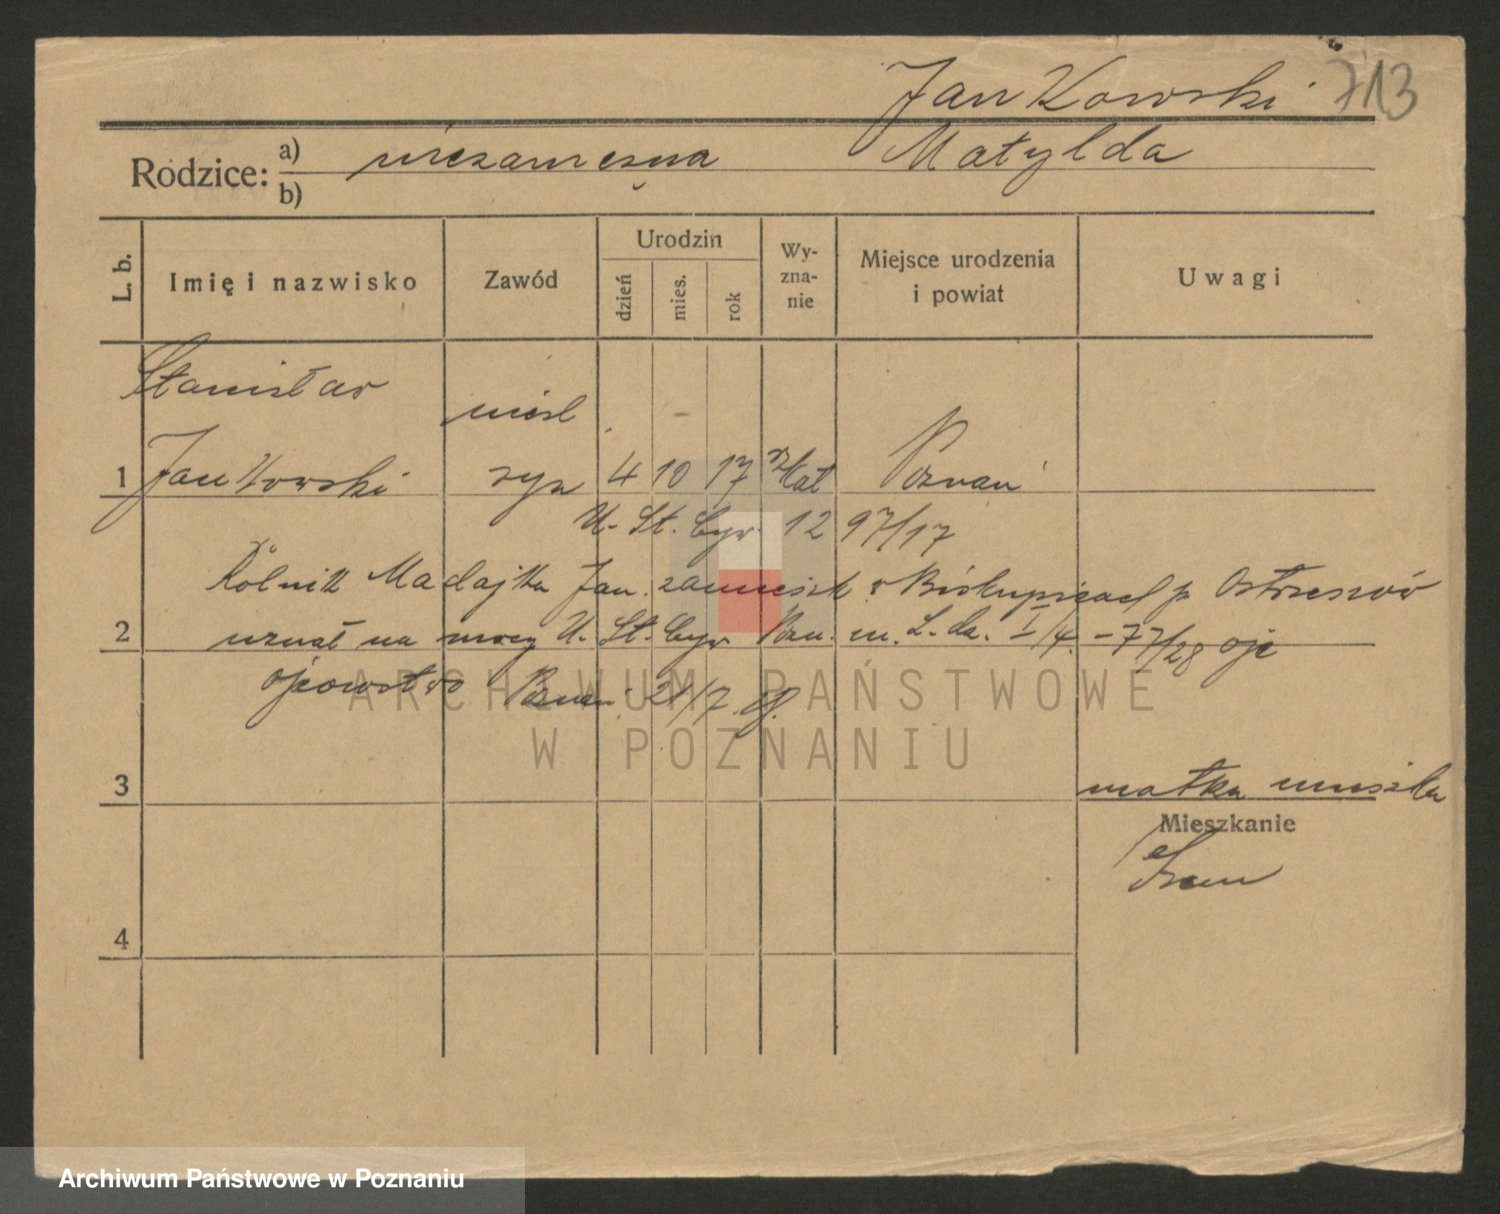 Jankowski 713
Rodzice: a) niezamężna Matylda
b)
L. b. Imię i nazwisko Zawód Urodzin dzień mies. rok Wyznanie Miejsce urodzenia i powiat Uwagi
Stanisław nieśl.
1 Jankowski syn 4 10 17 rzkat Poznań
U. St. Cyw. 12 97/17
Rolnik Madajka Jan zamieszk. w Biskupicach p. Ostrzeszów
2 uznał na mocy U. St. Cyw. Pozn. m. L. dz. I/4. - 77/28 ojc
ojcowstwo Poznań 21/7
ARCHIWUM PAŃSTWOWE
W POZNANIU
3 matka
Mieszkanie
4
Archiwum Państwowe w Poznaniu